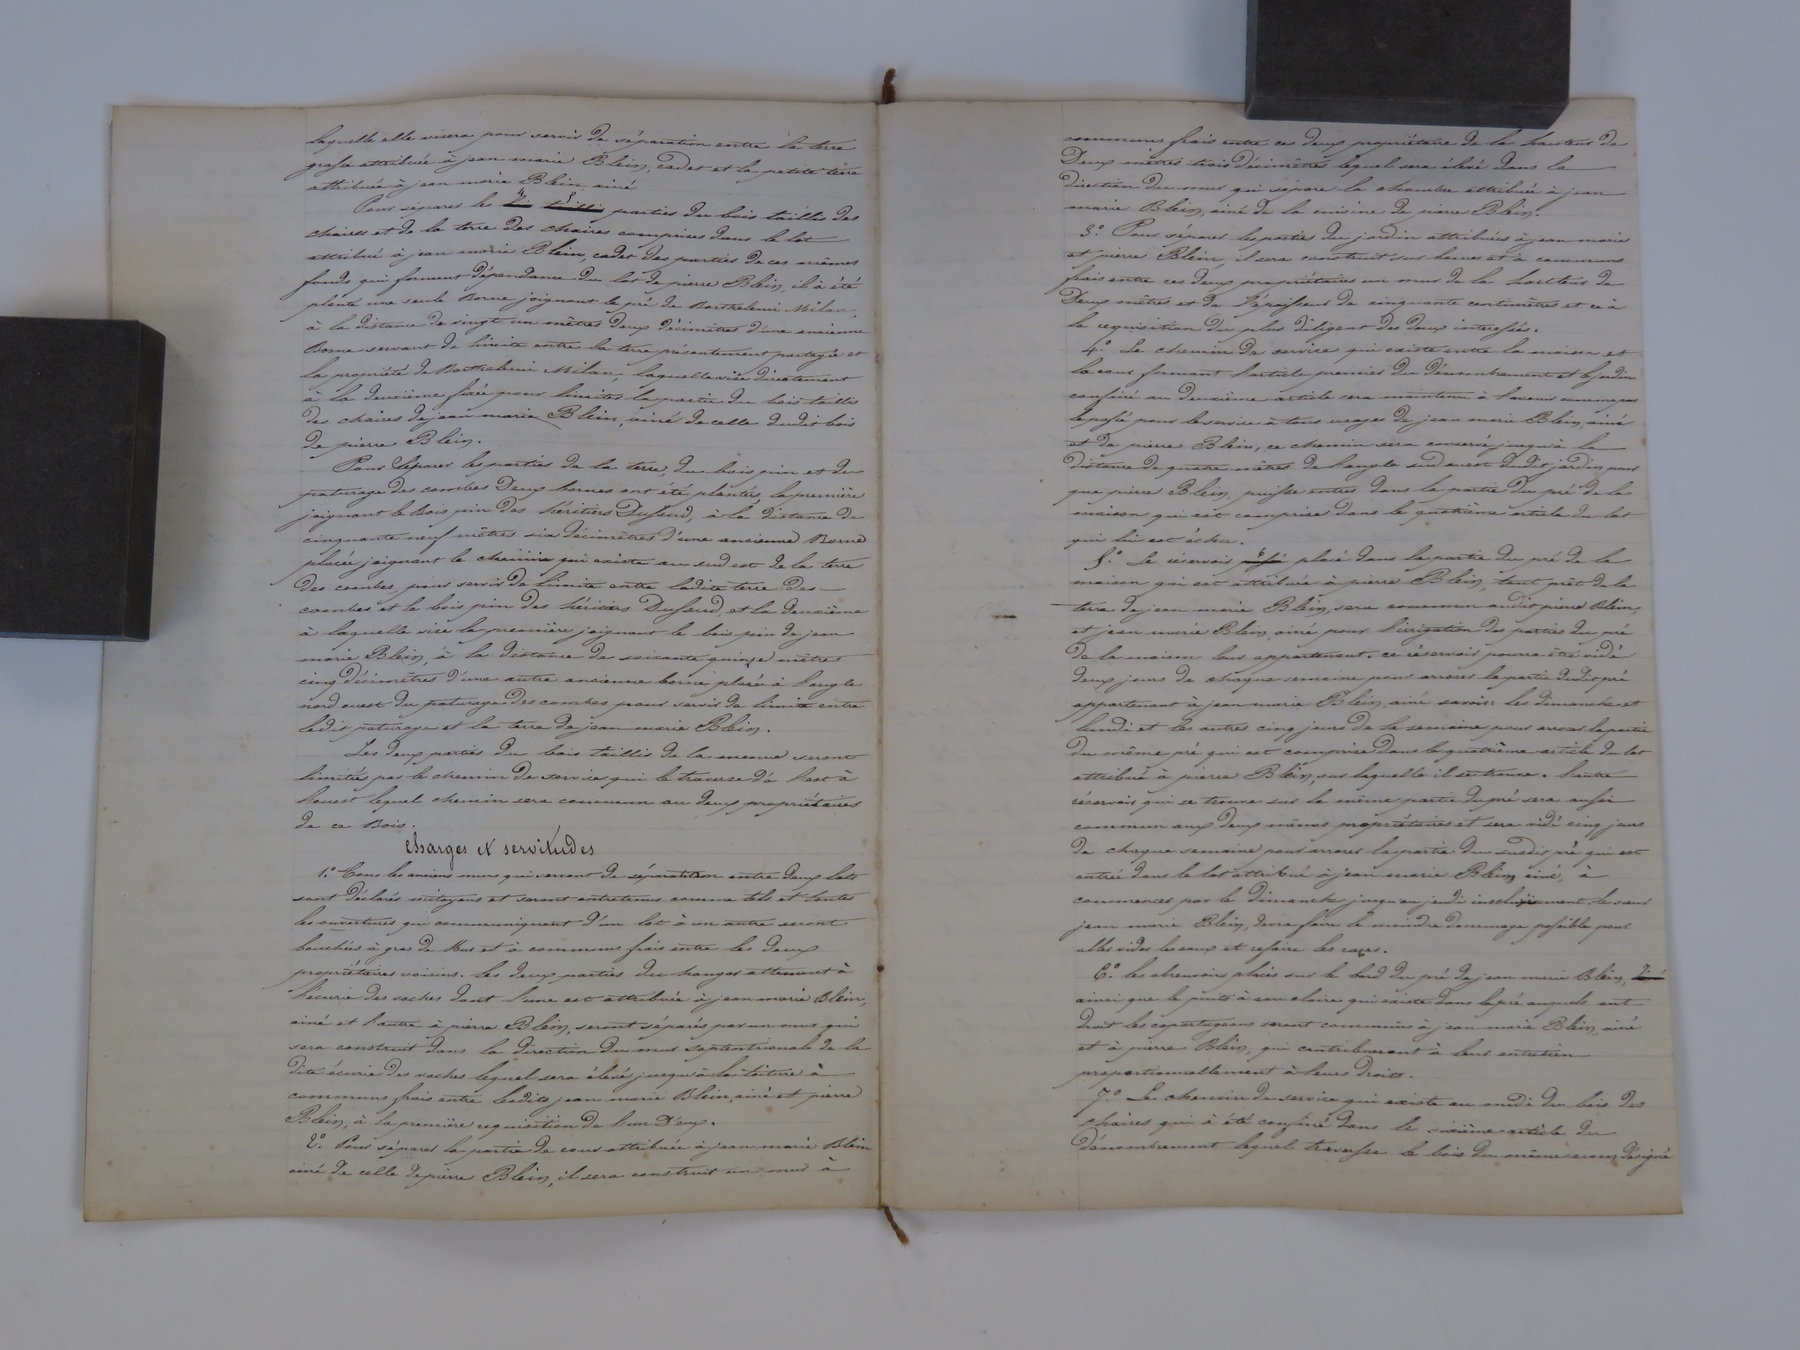 laquelle elle visera pour servir de séparation entre la terre
grasse attribuée à jean marie Blein, cadet et la petite terre
attribuée à jean marie Blein, ainé
Pour séparer les 4 5 parties du bois taillis des
chaires et de la terre des chaires comprises dans le lot
attribué à jean marie Blein, cadet des parties de ces mêmes
fonds qui forment dépendance du lot de pierre Blein, il a été
planté une seule Borne joignant le pré de Barthelemi Milan,
à la distance de vingt un mètres deux décimètres d'une ancienne
Borne servant de limite entre la terre présentement partagée et
la propriété de Barthelemi Milan, laquelle vise directement
à la deuxième fixée pour limiter la partie du bois taillis
des chaires de jean marie Blein, ainé de celle dudit bois
de pierre Blein.
Pour séparer les parties de la terre, du bois pin et de
paturage des combes Deux bornes ont été plantés, la première
joignant le Bois pin des héritiers Dufaud, à la distance de
cinquante neuf mètres six décimètres d'une ancienne Borne
placée joignant le chemin qui existe au sud est de la terre
des combes, pour servir de limite entre ladite terre des
combes et le bois pin des héritiers Dufaud, et la deuxième
à laquelle vise la première joignant le bois pin de jean
marie Blein, à la distance de soixante quinze mètres
cinq décimètres d'une autre ancienne borne placée à l'angle
nord ouest du paturage des combes pour servir de limite entre
ledit paturage et la terre de jean marie Blein.
Les deux parties du bois taillis de la seront
limitées par le chemin de service qui le traverse de l'est à
l'ouest lequel chemin sera commun au deux propriétaires
de ce Bois.
Charges et servitudes
1.° Tous les anciens murs qui servent de séparation entre deux lots
sont déclarés mitoyens et seront entretenus comme tels et toutes
les ouvertures qui communiquent d'un lot à un autre seront
bouchées à gros de Mur et à communs frais entre les deux
propriétaires voisins. les deux parties du hangar attenant à
l'écurie des vaches dont l'une est attribuée à jean marie Blein,
ainé et l'autre à pierre Blein, seront séparés par un mur qui
sera construit dans la direction du mur septentrionale de la
dite écurie des vaches lequel sera élevé jusqu'à la toiture à
communs frais entre lesdits jean marie Blein, ainé et pierre
Blein, à la première requisition de l'un d'eux.
2.° Pour séparer la partie de cour attribuée à jean marie Blein
ainé de celle de pierre Blein, il sera construit un mur à
communs frais entre ces deux propriétaire de la hauteur de
Deux mètres trois décimètres lequel sera élevé dans la
direction du mur qui sépare la chambre attribuée à jean
marie Blein, ainé de la cuisine de pierre Blein.
3.° Pour séparer les parties du jardin attribuées à jean marie
et pierre Blein, il sera construit sur leurs et à communs
frais entre ces deux propriétaires un mur de la hauteur de
Deux mètres et de l'épaisseur de cinquante centimètres et ce à
la requisition du plus diligent des deux intéressés.
4.° Le chemin de service qui existe entre la maison et
la cour formant l'article premier du dénombrement et le jardin
confiné au deuxième article sera maintenu à l'avenir comme par
le passé pour le service à tous usages de jean marie Blein ainé
et de pierre Blein, ce chemin sera conservé jusqu'à la
distance de quatre mètres de l'angle sud ouest dudit jardin pour
que pierre Blein, puisse entrer dans la partie du pré de la
maison qui est comprise dans le quatrième article du lot
qui lui est échu.
5.° Le réservoir 6 placé dans la partie du pré de la
maison qui est attribuée à pierre Blein, tout prêt de la
terre de jean marie Blein, sera commun audit pierre Blein,
et jean marie Blein, ainé pour l'irrigation des parties du pré
de la maison leur appartenant. ce réservoir pourra être vidé
deux jours de chaque semaine pour arroser la partie dudit pré
appartenant à jean marie Blein, ainé savoir: les dimanche et
lundi et les autres cinq jours de la semaine pour arroser la partie
du même pré qui est comprise dans le quatrième article du lot
attribué à pierre Blein, sur laquelle il se trouve. l'autre
réservoir qui se trouve sur la même partie du pré sera aussi
commun aux deux mêmes propriétaires et sera vidé cinq jours
de chaque semaine pour arroser la partie du susdit pré qui est
entrée dans le lot attribué à jean marie Blein ainé, à
commencer par le dimanche jusqu'au jeudi inclusivement. le sieur
jean marie Blein, devra faire le moindre dommage possible pour
aller vider les eaux et refaire les rases.
6.° les abreuvoirs placés sur le bord du pré de jean marie Blein,
ainsi que le puits à eau claire qui existe dans le pré auquels ont
droit les copartageans seront communs à jean marie Blein, ainé
et à pierre Blein, qui contribueront à leur entretien
proportionnellement à leurs droits.
7.° Le chemin de service qui existe au midi du bois des
chaires qui à été confiné dans le sixième article du
dénombrement lequel traverse le bois du même nom, désigné